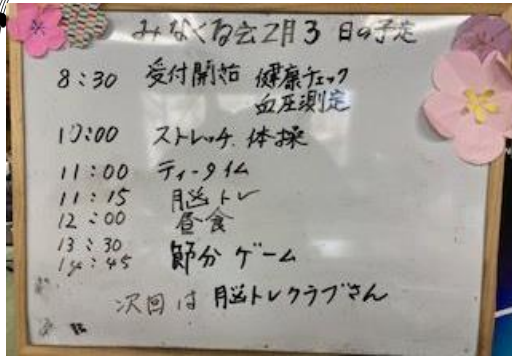 みなくる会2月3日の予定
8:30 受付開始 健康チェック
血圧測定
10:00 ストレッチ 体操
11:00 ティータイム
11:15 脳トレ
12:00 昼食
13:30
14:45 節分ゲーム
次回は脳トレクラブさん